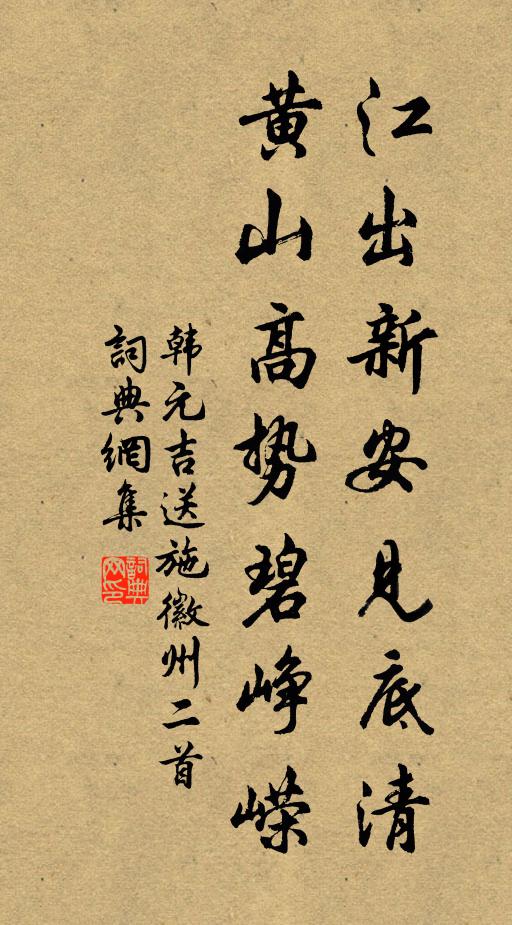 江出新安見底清
黄山高势碧峥嵘
韩元吉送施徽州二首
詞典網集
詞典网印